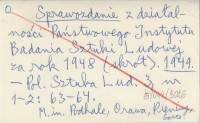 Sprawozdanie z działal-
ności Państwowego Instytutu
Badania Sztuki Ludowej
za rok 1948 (skrót). 1949.
- Pol. Sztuka Lud. 3, nr
1-2: 63-64.
M. in. Podhale, Orawa, Pieniny